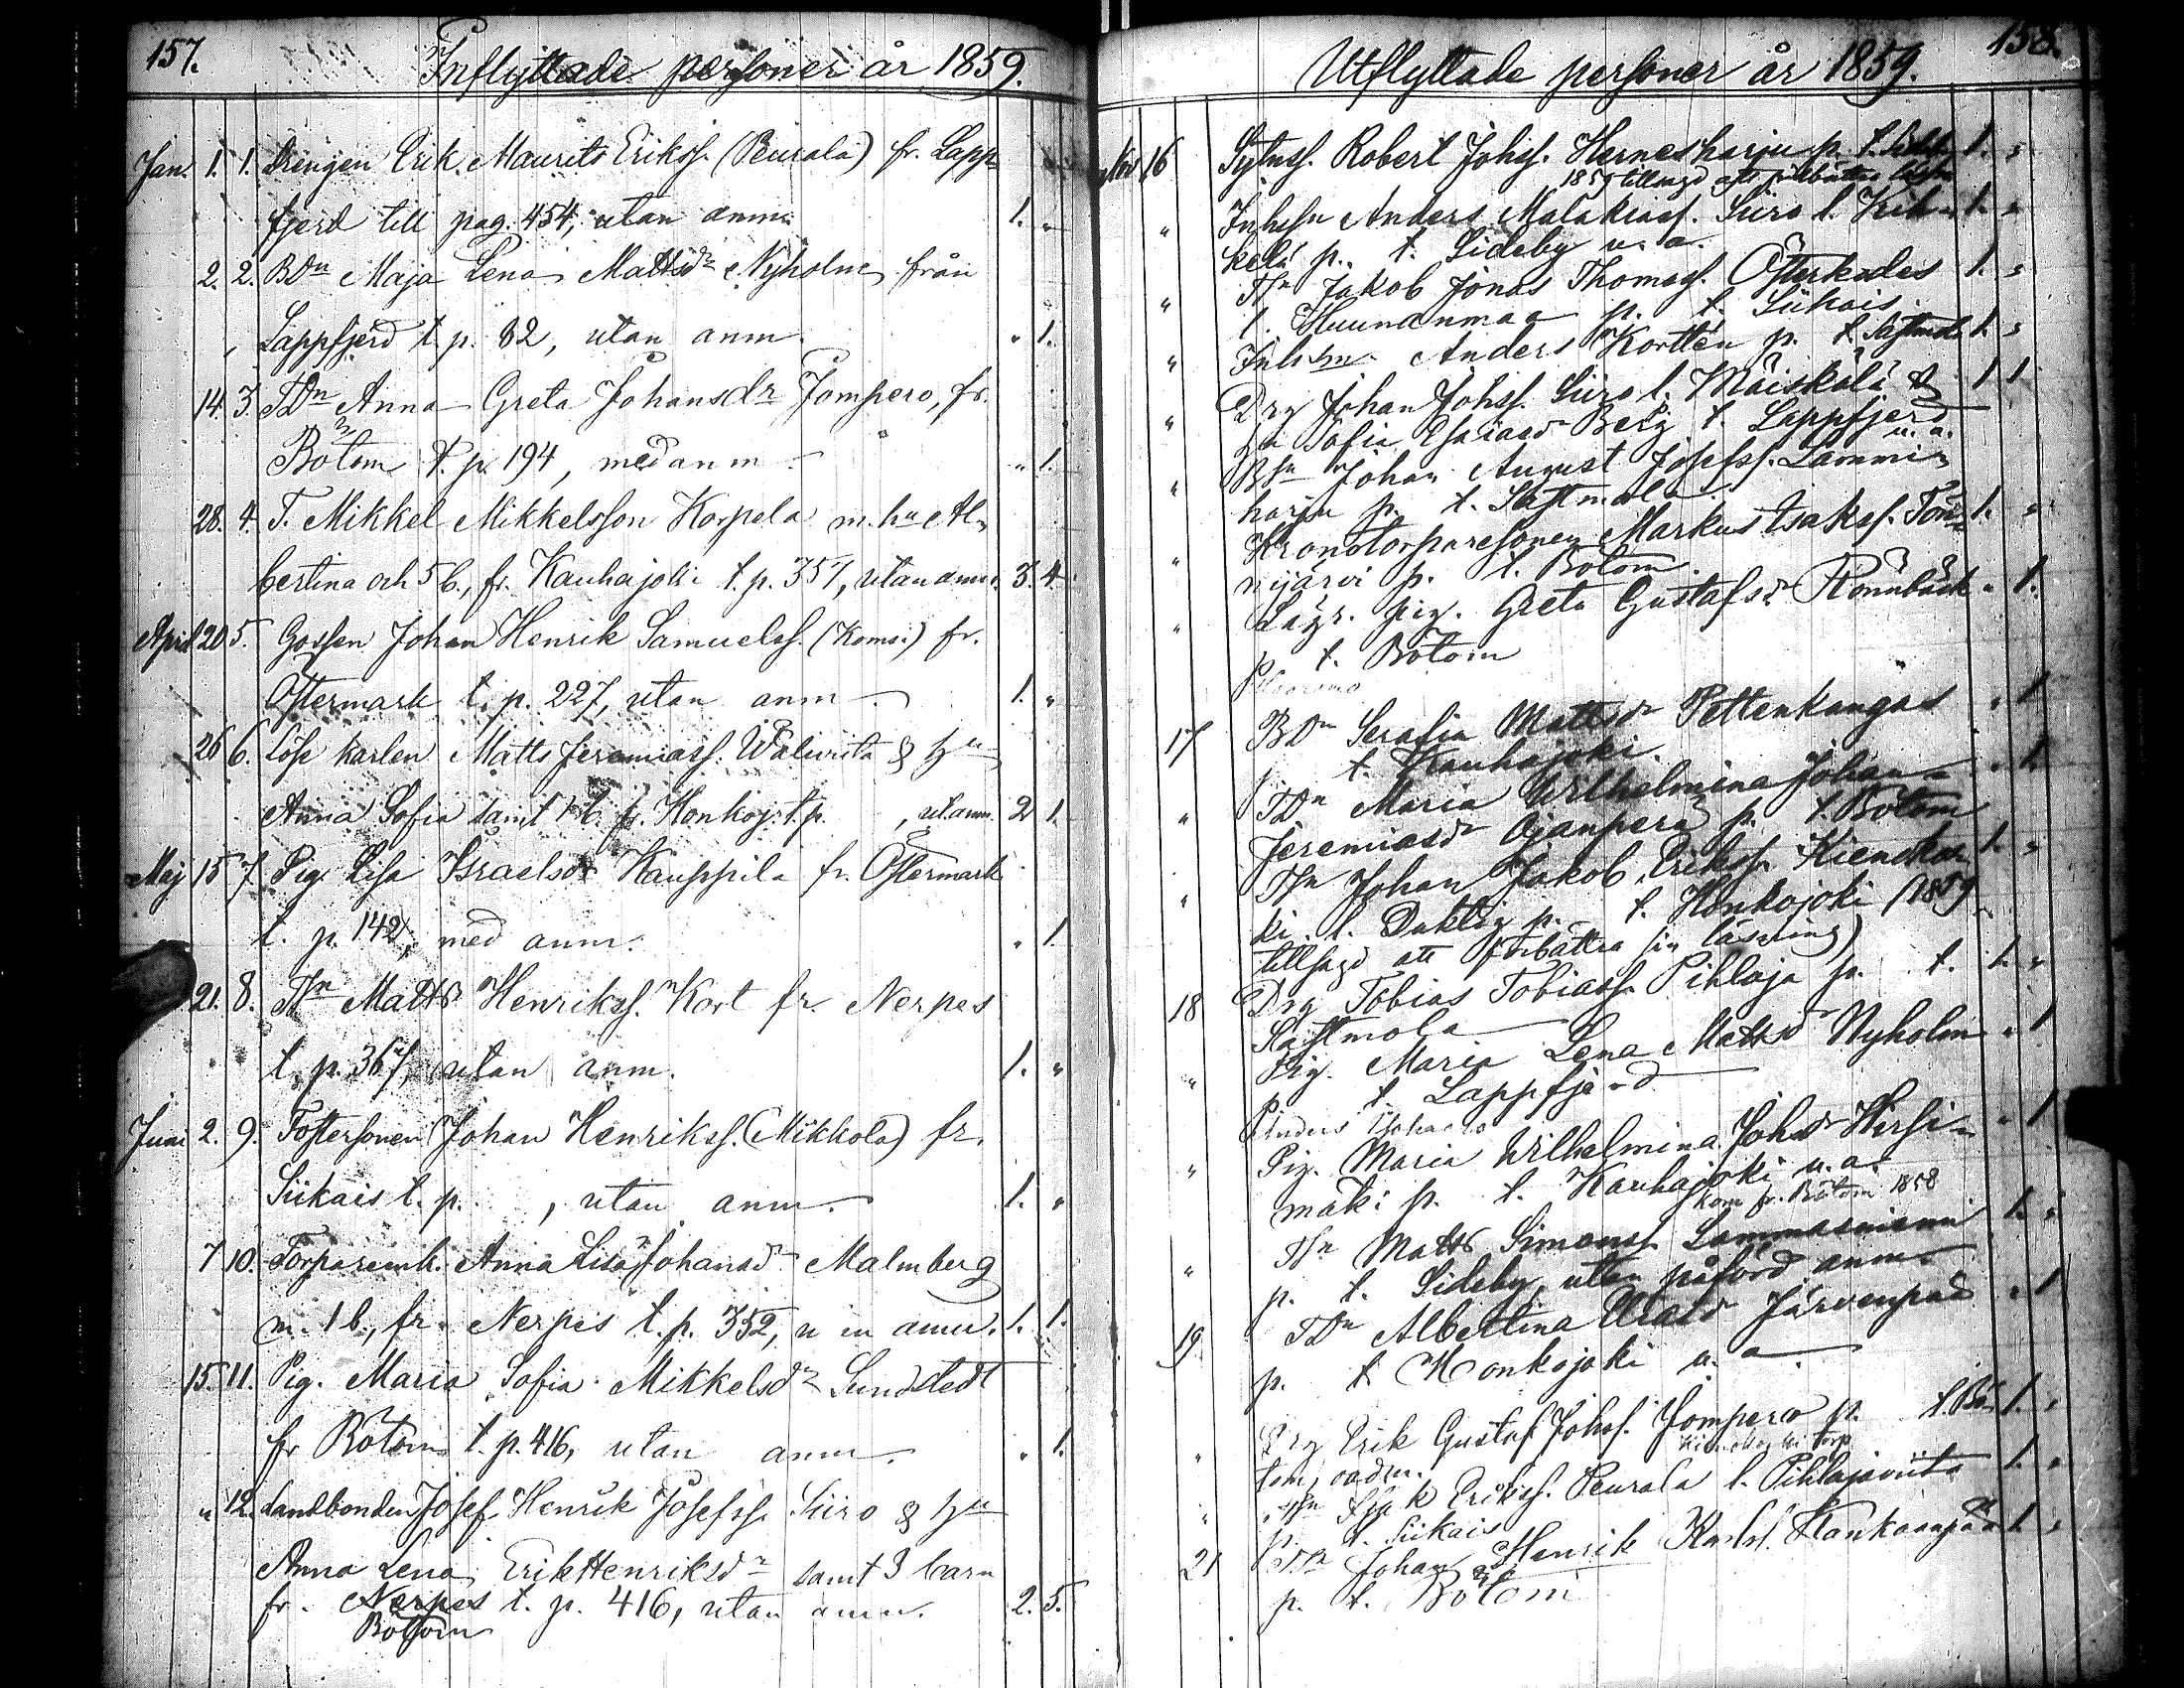 157.
Inflyttade personer år 1859.
Jan. 1. 1. Drengen Erik Maurits Erikss. (Peurala) fr. Lapp-
fjerd till pag. 454, utan anm. 1. "
2. 2. BDn Maja Lena Mattsdr Nyholm från
Lappfjerd t. p. 82, utan anm. " 1.
14. 3. TDn Anna Greta Johansdr Jompero, fr.
Bötom t. p. 194, med anm. " 1.
28. 4. T. Mikkel Mikkelsson Korpela m. hu Al-
bertina och 5 b., fr. Kauhajoki t. p. 357, utan anm. 3. 4.
April 20 5. Gossen Johan Henrik Samuelss. (Komsi) fr.
Östermark t. p. 227, utan anm. 1. "
26 6. Löse karlen Matts Jeremiass. Waliviita & hu
Anna Sofia samt 1 b. fr. Honkoj. t. p. , ut. anm. 2 1.
Maj 15 7 Pig. Lisa Israelsdr Kauppila fr. Östermark
t. p. 142, med anm. " 1.
21. 8. TSn Matts Henrikss. Kort fr. Nerpes
t. p. 367, utan anm. 1. "
Juni 2. 9. Fostersonen Johan Henrikss. (Mikkola) fr.
Siikais t. p. , utan anm. 1. "
7 10. Torparenk. Anna Lisa Johansdr Malmberg
m. 1 b., fr. Nerpes t. p. 352, u in anm. 1. 1.
15. 11. Pig. Maria Sofia Mikkelsdr Sundstedt
fr Bötom t. p. 416, utan anm. " 1.
" 12. Landbonden Josef Henrik Josefss. Siiro & hu
Anna Lena Erik Henriksdr samt 3 barn
fr. Nerpes t. p. 416, utan anm. 2. 5.
Bötom
158.
Utflyttade personer år 1859.
16 Sytnss. Robert Johss. Hernesharju p. t. 1. "
1859 tillsagd att förbättra
" Inhssn Anders Malakiass. Siiro l. Keih- 1. "
kelä p. t. Sideby u. a.
" TSn Jakob Jonas Thomass. Österkades 1. "
l. Huunanmaa p. t. Siikais
" Inhsm. Anders Kortten p. t. Sastmola 1. "
" Drg Johan Johss. Siiro l. Mäiskälä & 1 1
hu Sofia Esaiasdr Berg t. Lappfjerd
u. a.
" BSn Johan August Josefss. Lammin
harju p. t. Sastmola
" Kronotorparesonen Markus Isakss. Tön- 1. "
nijärvi p. t. Bötom.
" Lägr. pig. Greta Gustafsdr Rönnback " 1.
p. t. Bötom
17 BDn Serafia Mattsdr Pettenkangas " 1
p. t. Kauhajoki.
" TDn Maria Wilhelmina Johan " 1.
Jeremiasdr Ojanperä p. t. Bötom
" TSn Johan Jakob Erikss. Kienokos 1. "
ki l. p. t. Honkojoki (1859
tillsagd att förbättra sin läsning)
18 Drg Tobias Tobiass. Pihlaja p. t. 1. "
Sastmola
" Pig. Maria Lena Mattsdr Nyholm " 1
p t. Lappfjärd
" Pig. Maria Wilhelmina Johsdr Hirsi- " 1
mäki p. t. Kauhajoki u. a.
kom fr. Bötom 1858
" TSn Matts Simonss. Lammasniemi 1. "
p. t. Sideby, utan påförd anm
19. TDn Albertina Järvenpää " 1
p. t Honkojoki u. a.
" Drg Erik Gustaf Johss. Jompero p. t. Bö- 1. "
tom,
" TSn Isak Erikss. Peurala l. Pihlajaviita 1. "
p. t. Siikais
21 TSn Johan Henrik Karlss. Hankaanpää 1. "
p. t. Bötom